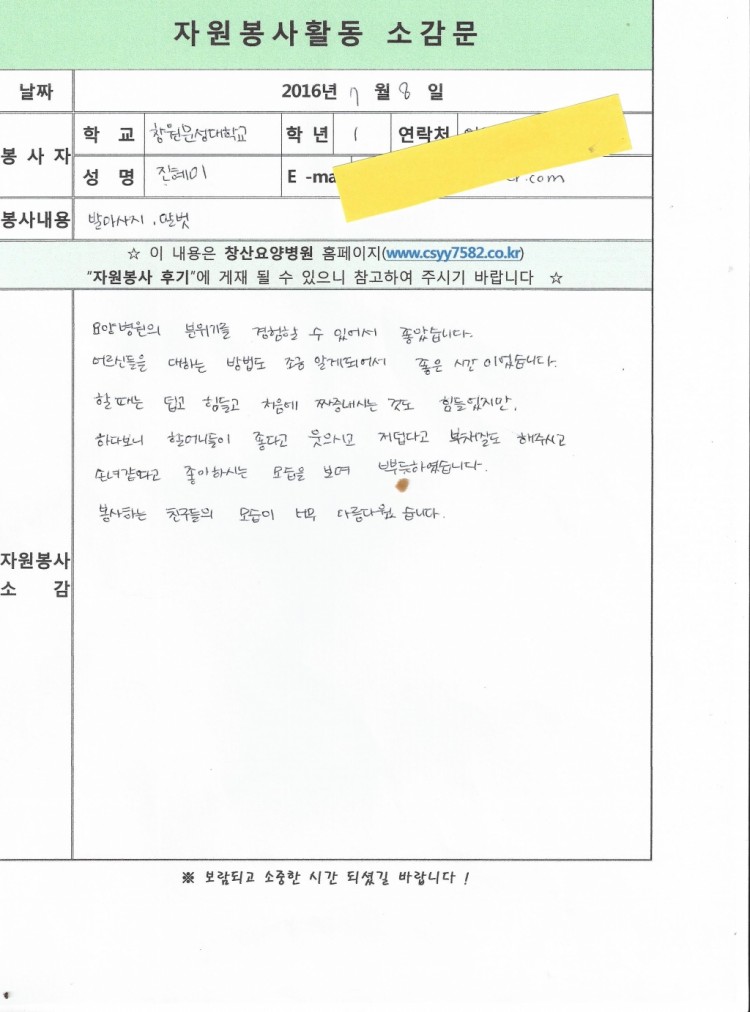 자원봉사활동 소감문
날짜 2016년 7 월 8 일
봉사자
학 교 창원문성대학교 학 년 1 연락처
성 명 진혜미 E -ma .com
봉사내용 발마사지, 말벗
☆ 이 내용은 창산요양병원 홈페이지(www.csyy7582.co.kr)
"자원봉사 후기"에 게재 될 수 있으니 참고하여 주시기 바랍니다 ☆
요양병원의 분위기를 경험할 수 있어서 좋았습니다.
어르신들을 대하는 방법도 조금 알게되어서 좋은 시간 이었습니다.
할 때는 덥고 힘들고 처음에 짜증내시는 것도 힘들었지만,
하다보니 할머니들이 좋다고 웃으시고 저덥다고 부채질도 해주시고
손녀같다고 좋아하시는 모습을 보며 뿌듯하였습니다.
봉사하는 친구들의 모습이 너무 아름다웠습니다.
자원봉사
소 감
※ 보람되고 소중한 시간 되셨길 바랍니다 !